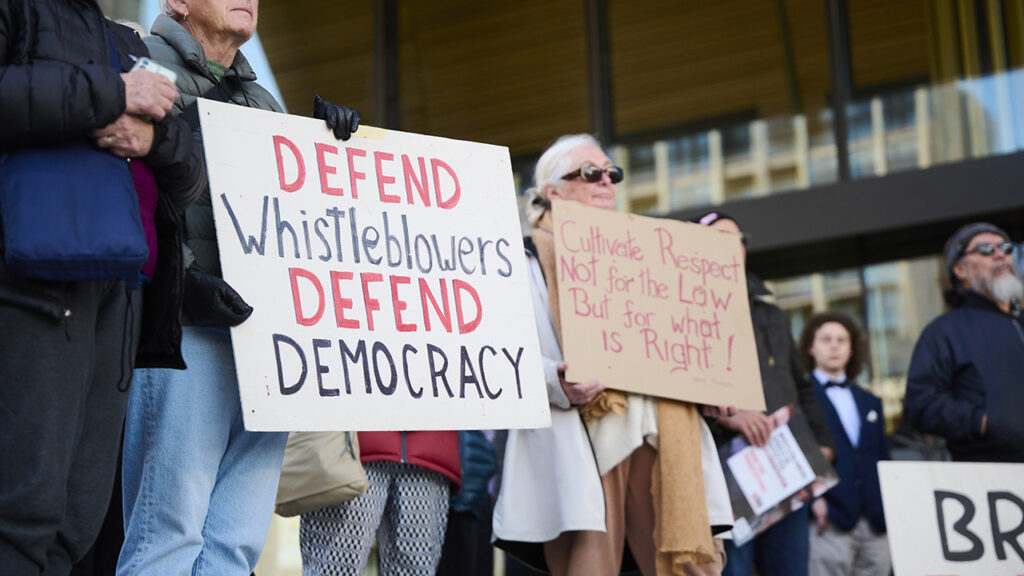 DEFEND
Whistleblowers
DEFEND
DEMOCRACY
Cultivate Respect
Not for the Law
But for what
is Right!
BR